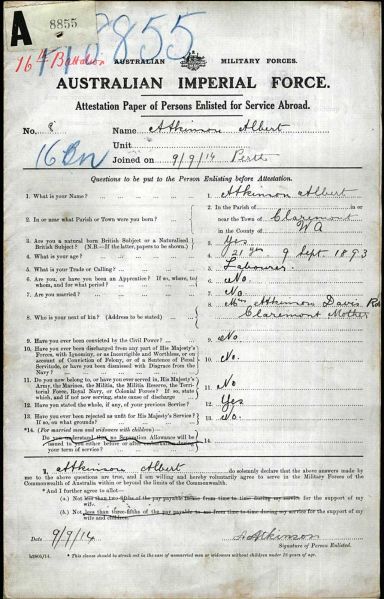 A 8855
8855
16th Battalion
AUSTRALIAN MILITARY FORCES.
AUSTRALIAN IMPERIAL FORCE.
Attestation Paper of Persons Enlisted for Service Abroad.
No. 8 Name Atkinson Albert
Unit
16 Bn Joined on 9/9/14 Perth
Questions to be put to the Person Enlisting before Attestation.
1. What is your Name? 1. Atkinson Albert
2. In or near what Parish or Town were you born? 2. In the Parish of
near the Town of Claremont
in the County of WA
3. Are you a natural born British Subject or a Naturalised
British Subject? (N.B.—If the latter, papers to be shown.) 3. Yes
4. What is your age? 4. 21 yrs 9 Sept. 1893
5. What is your Trade or Calling? 5. Labourer
6. Are you, or have you been an Apprentice? If so, where, to
whom, and for what period? 6. No
7. Are you married? 7. No
8. Who is your next of kin? (Address to be stated) 8. Mrs Atkinson Davis Rd
Claremont Mother
9. Have you ever been convicted by the Civil Power? 9. No
10. Have you ever been discharged from any part of His Majesty's
Forces, with Ignominy, or as Incorrigible and Worthless, or on
account of Conviction of Felony, or of a Sentence of Penal
Servitude, or have you been dismissed with Disgrace from the
Navy? 10. No.
11. Do you now belong to, or have you ever served in, His Majesty's
Army, the Marines, the Militia, the Militia Reserve, the Territorial
Force, Royal Navy, or Colonial Forces? If so, state
which, and if not now serving, state cause of discharge 11. No
12. Have you stated the whole, if any, of your previous Service? 12. Yes
13. Have you ever been rejected as unfit for His Majesty's Service?
If so, on what grounds? 13. No.
*14. (For married men and widowers with children)—
Do you understand that no Separation Allowance will be
issued to you either before or after embarkation during
your term of service? 14.
I, Atkinson Albert do solemnly declare that the above answers made by
me to the above questions are true, and I am willing and hereby voluntarily agree to serve in the Military Forces of the
Commonwealth of Australia within or beyond the limits of the Commonwealth.
*And I further agree to allot—
(a.) Not less than two-fifths of the pay payable to me from time to time during my service for the support of my
wife.
(b.) Not less than three-fifths of the pay payable to me from time to time during my service for the support of my
wife and children.
Date 9/9/14 A. Atkinson
Signature of Person Enlisted.
* This clause should be struck out in the case of unmarried men or widowers without children under 18 years of age.